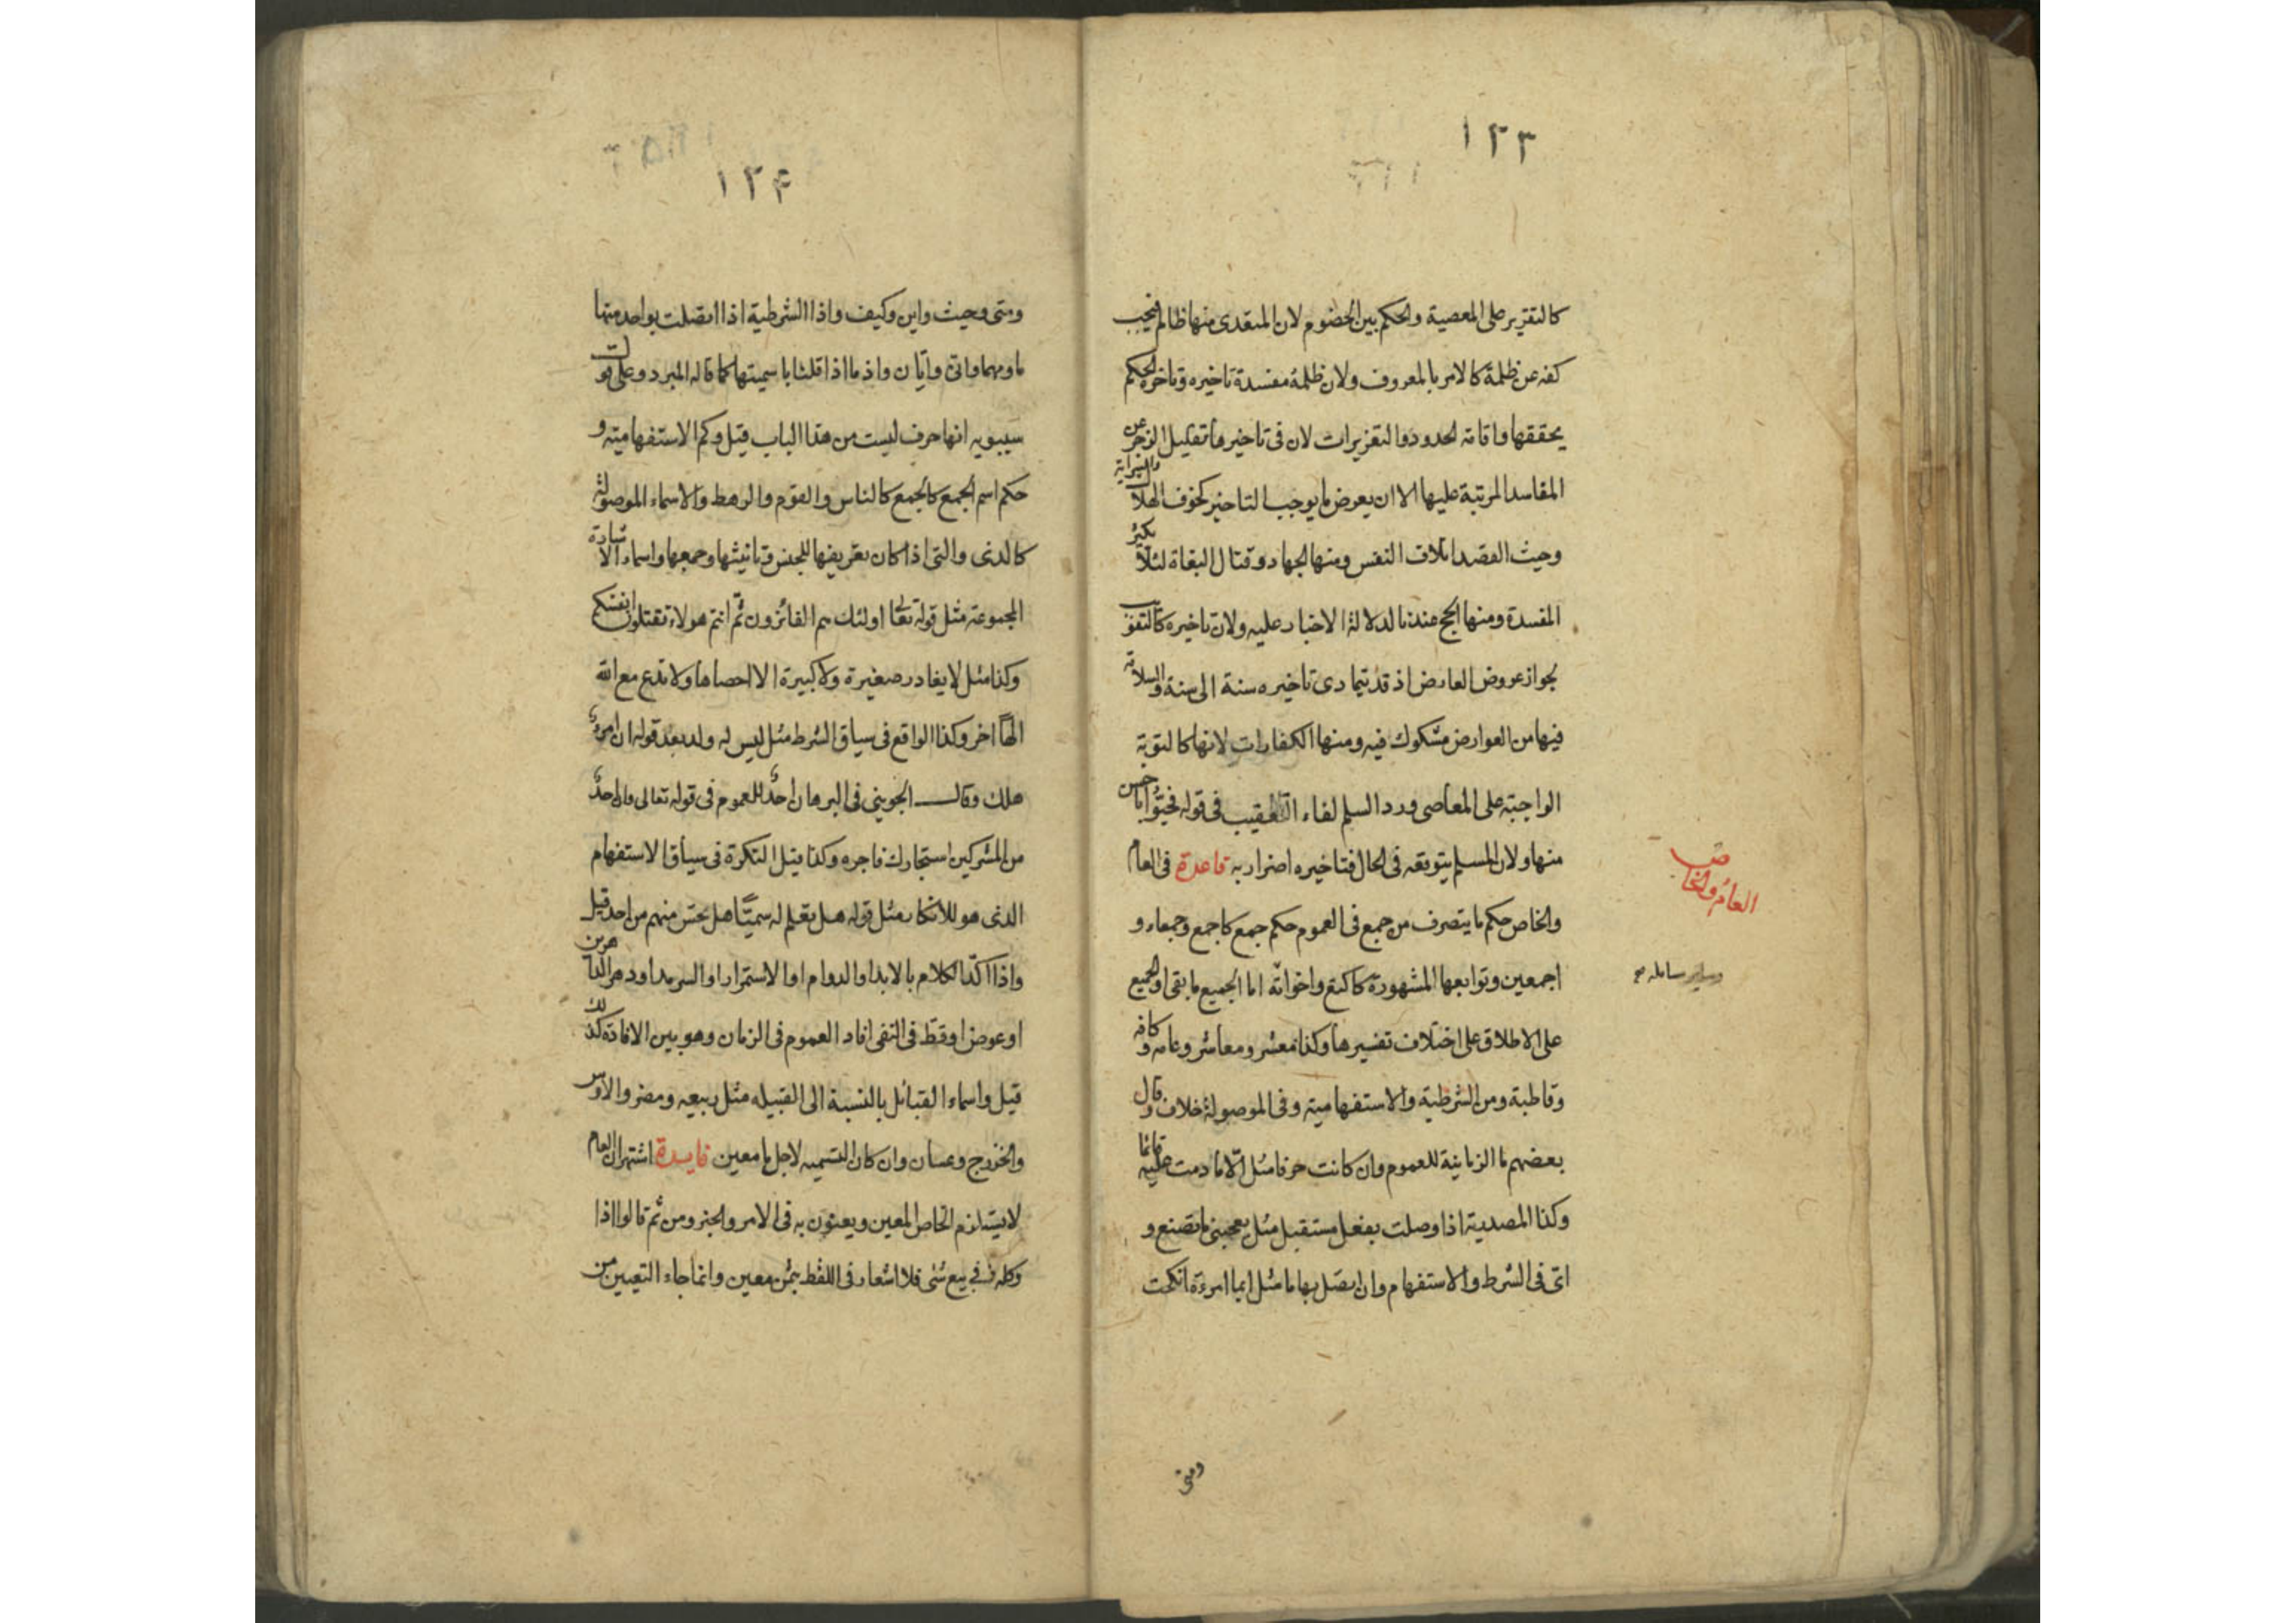 ١٢٣
كالتقرير على المعصية والحكم بين الخصوم لان المتعدى منها ظالم فيجب
كفه عن ظلمة كالامر بالمعروف ولان ظلمة مفسدة تاخيره وتاخره الحكم
يحققها واقامة الحدود والتعزيرات لان فى تاخيرها تقليل الزجر عن
المفاسد المرتبة عليها الا ان يعرض ما يوجب التاخير كخوف الهلاك والسراية
وحيث القصد اتلاف النفس ومنها الجهاد وقتال البغاة لئلا يكثر
المفسدة ومنها الحج عندنا لدلالة الاخبار عليه ولان تاخيره كالتفويت
بجواز عروض العارض اذ قد يتمادى تاخيره سنة الى سنة والسلامة
فيها من العوارض مشكوك فيه ومنها الكفارات لانها كالتوبة
الواجبة على المعاصى ورد السلم لفاء التعقيب فى قوله فحيّوا باحسن
منها ولان المسلم يتوقعه فى الحال فتاخيره اضرار به قاعدة فى العام
العام والخاص
والخاص حكم ما يتصرف من جمع فى العموم حكم جمع كاجمع وجمعاء و
اجمعين وتوابعها المشهورة كاكتع واخواته اما الجميع ما بقى او الجميع
على الاطلاق على اختلاف تفسيرها وكذا معشر ومعاشر وعامه وكافه
وقاطبة ومن الشرطية والاستفهامية وفى الموصولة خلاف وقال
بعضهم ما الزمانية للعموم وان كانت حرفا مثل الا ما دمت عليه قائما
وكذا المصدرية اذا وصلت بفعل مستقبل مثل يعجبنى ما تصنع و
اىّ فى الشرط والاستفهام وان اتصل بها ما مثل ايما امرءة انكحت
ومتى
١٢۴
ومتى وحيث واين وكيف واذا الشرطية اذا اتصلت بواحد منها
ما ومهما وانى وايّان واذ ما اذا قلنا باسميتها كما قاله المبرد وعلى قول
سيبويه انها حرف ليست من هذا الباب قيل وكم الاستفهامية و
حكم اسم الجمع كالجمع كالناس والقوم والرهط والاسماء الموصولة
كالذى والتى اذا كان تعريفها للجنس وتانيثها وجمعها واسماء الاشارة
المجموعة مثل قوله تعالى اولئك هم الفائزون ثم انتم هولاء تقتلون انفسكم
وكذا مثل لا يغادر صغيرة ولا كبيرة الا احصاها ولا تدع مع الله
الهًا اخر وكذا الواقع فى سياق الشرط مثل ليس له ولد بعد قوله ان امرؤ
هلك وقال الجوينى فى البرهان احدٌ للعموم فى قوله تعالى وان احدٌ
من المشركين استجارك فاجره وكذا قيل النكرة فى سياق الاستفهام
الذى هو للانكار مثل قوله هل تعلم له سميًّا هل تحس منهم من احد قيل
واذا اكّد الكلام بالابد او الدوام او الاستمرار او السرمد او دهر الداهرين
او عوض او قطّ فى النفى افاد العموم فى الزمان وهو بين الافادة كذلك
قيل واسماء القبائل بالنسبة الى القبيله مثل ربيعه ومضر والاوس
والخزرج وغسان وان كان التسميه لاجل ما معين فايدة اشتهر ان العام
لا يستلزم الخاص المعين ويعنون به فى الامر والخبر ومن ثم قالوا اذا
وكله فى بيع شئى فلا اشعار فى اللفظ بثمن معين وانما جاء التعيين من